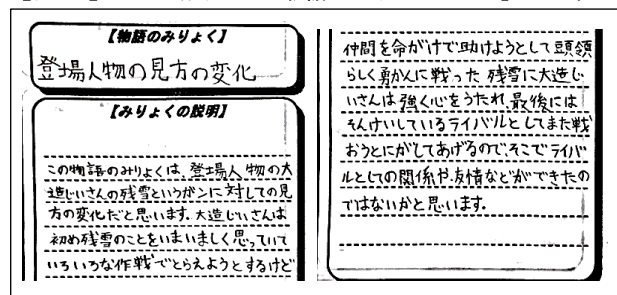 【物語のみりょく】
登場人物の見方の変化
【みりょくの説明】
この物語のみりょくは、登場人物の大
造じいさんの残雪というガンに対しての見
方の変化だと思います。大造じいさんは
初め残雪のことをいまいましく思っていて
いろいろな作戦でとらえようとするけど
仲間を命がけで助けようとして頭領
らしく勇かんに戦った残雪に大造じ
いさんは強く心をうたれ、最後には
そんけいしているライバルとしてまた戦
おうとにがしてあげるので、そこでライバ
ルとしての関係や、友情などができたの
ではないかと思います。